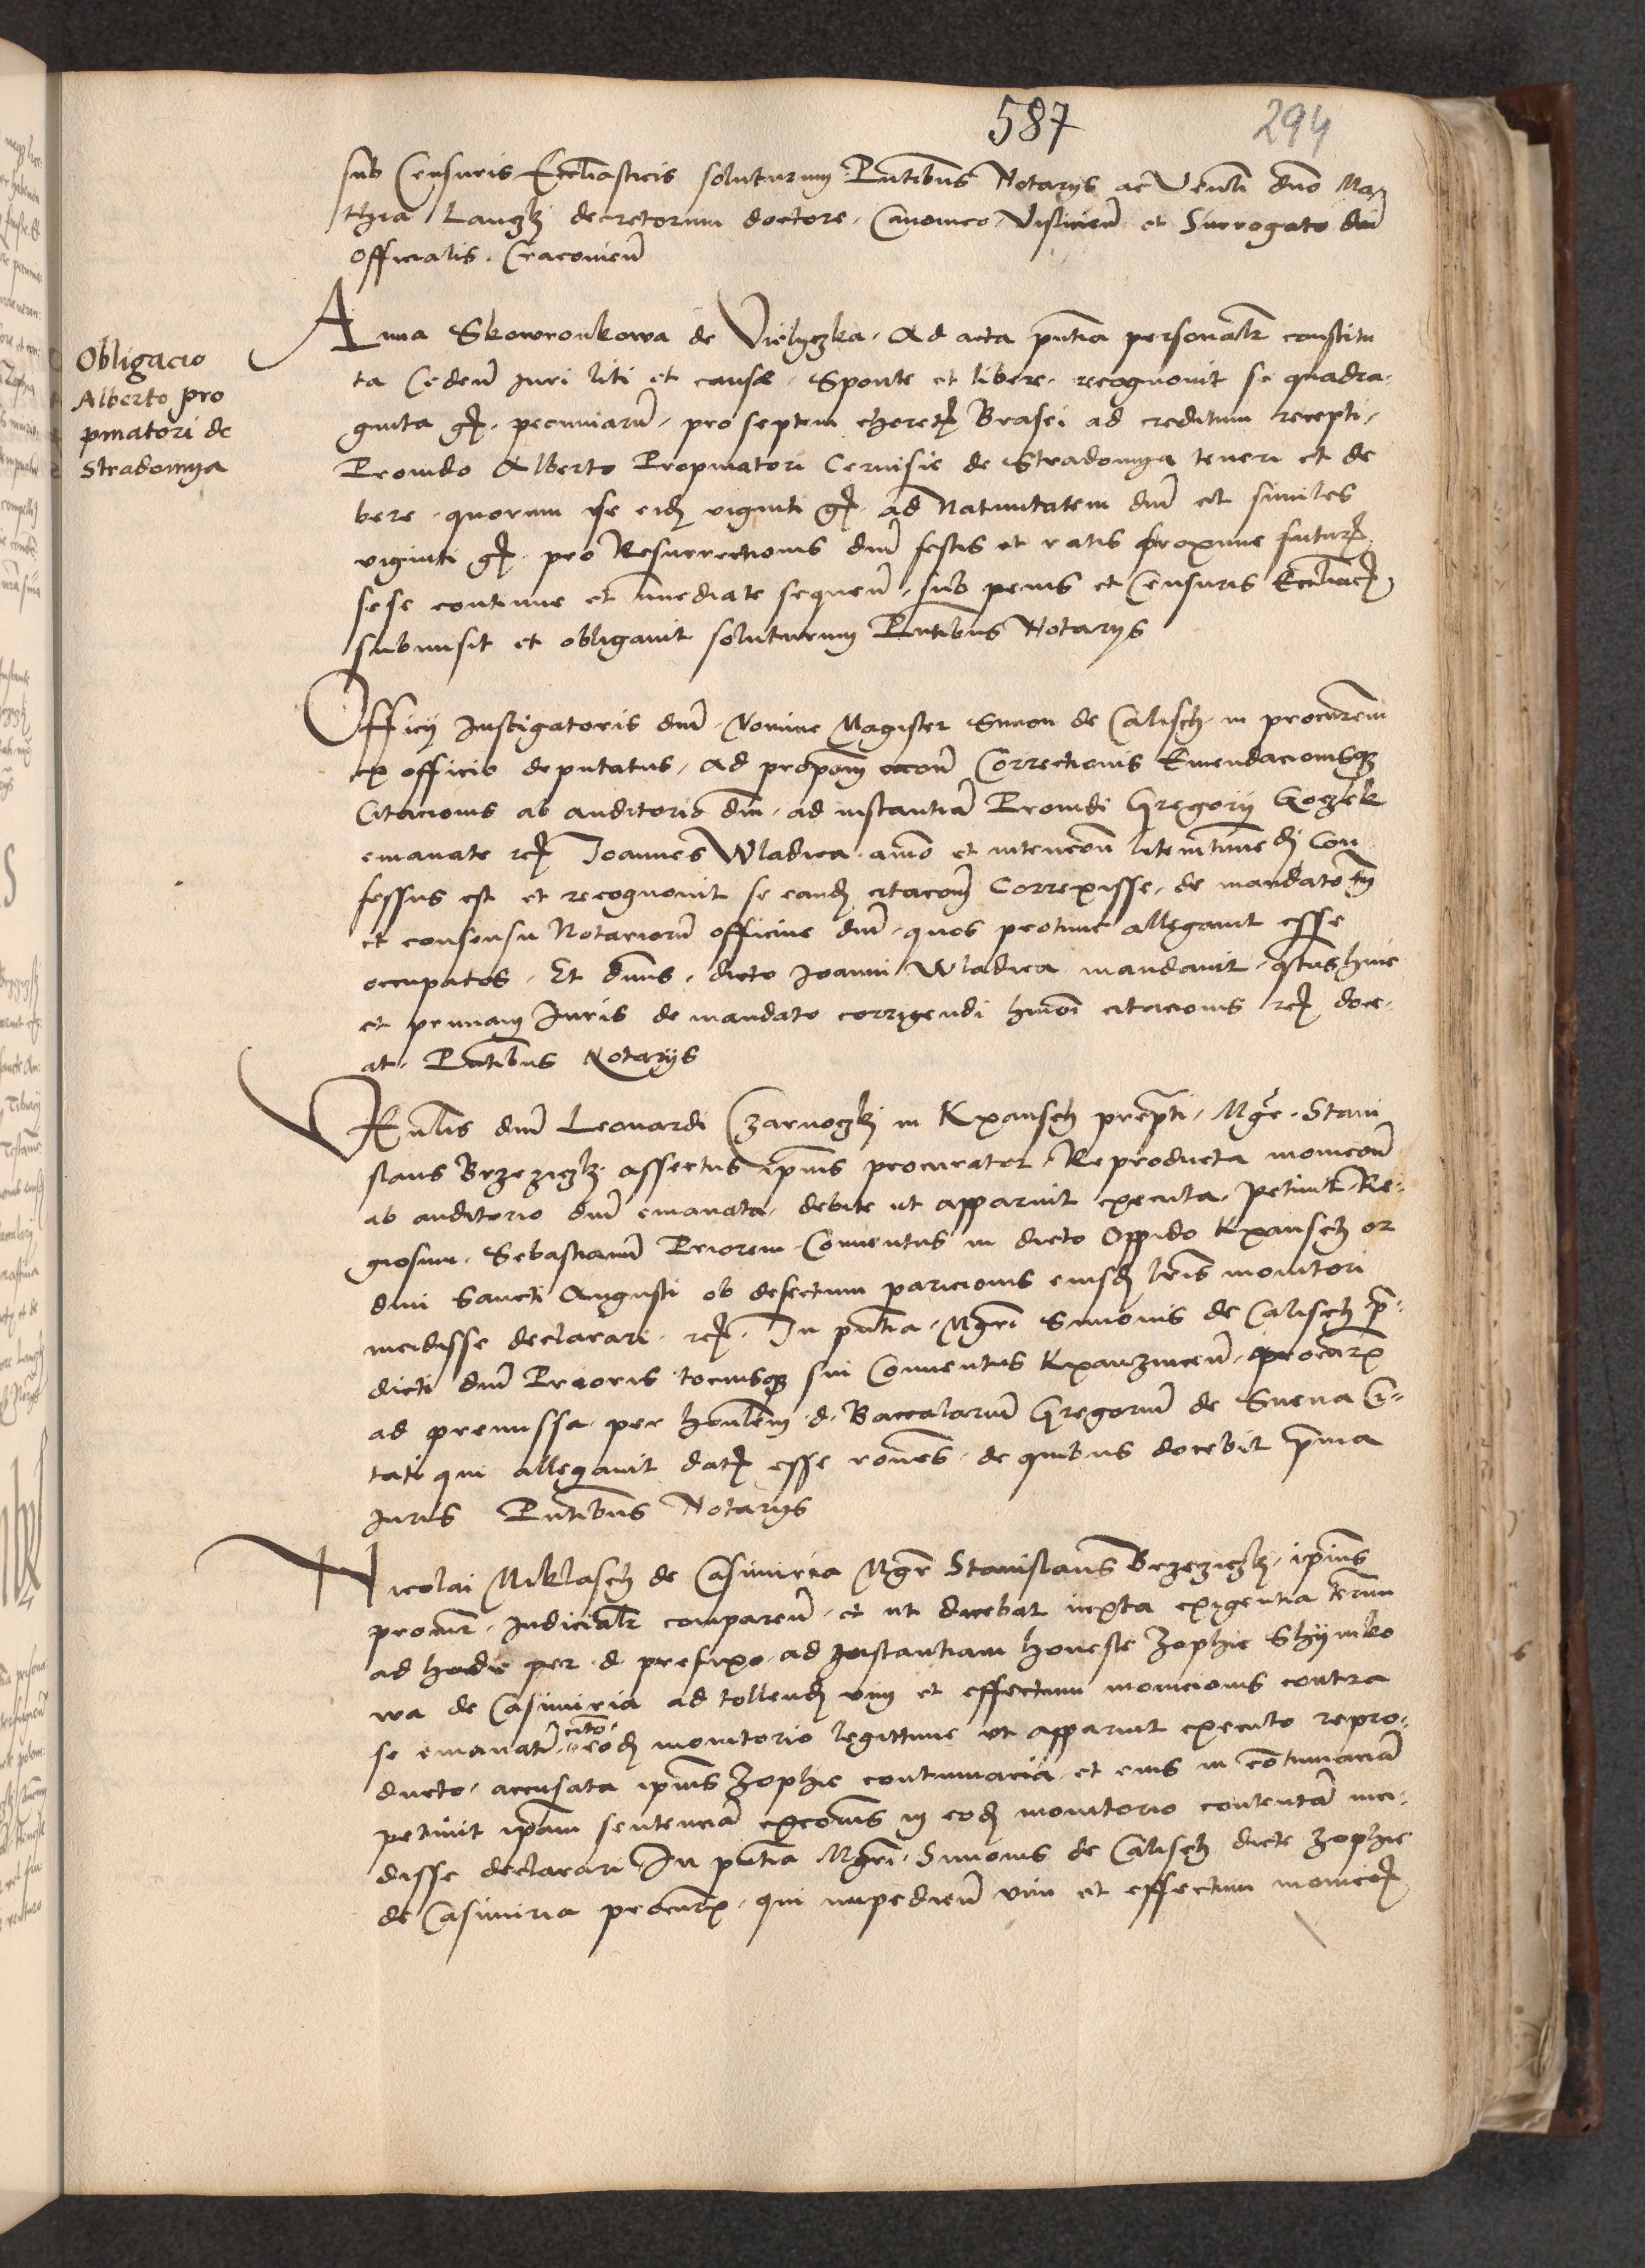 587 294
sub Censuris Eccl̄iasticis soluturum Pn̄tibus Notarijs ac Ven̄li dn̄o Ma
thia Langk̄ decretorum doctore, Canonico Vislicien̄ et Surrogato dn̄i
officialis. Cracovien̄
Obligacio
Alberto pro
pinatori de
Stradomya
Anna Skowronkowa de Vielyczka. Ad acta pn̄tia personal̄r constitu
ta Ceden̄ iuri liti et cause. Sponte et libere. recognovit se quadra
ginta gr̄. pecuniarū, pro septem choret̄ Brasei ad creditum recepti,
Provido Alberto Propinatori Cervisie de Stradomya teneri et de
bere. quorum se eid̄ viginti gr̄. ad Nativitatem dn̄i et similes
viginti gr̄. pro Resurrectionis dn̄i festis et ratis proxime futur̄.
sese continue et immediate sequen̄, sub penis et Censuris Eccl̄iac̄
submisit et obligavit soluturum Pn̄tibus Notarijs
Officij Instigatoris dn̄i Nomine Magister Simon de Calisch. in procur̄em
ex officio deputatus, ad propo͞m occon̄ Correctionis Emendacionisq̧
Citacionis ab auditorio dn̄i. ad instantiā Providi Gregorij Goczek
emanate rc̄ Joannes Wladica. animo et intencōn̄ litem Con
fessus est et recognovit se eand̄ citacōn̄ Correxisse, de mandato tn̄
et consensu Notariorū officine dn̄i. quos protunc allegavit esse
occupatos. Et dn̄us. dicto Joanni Wladica mandavit, q̄tus hinc
et primam Juris de mandato corrigendi hm̄oi citacionis rc̄ doce,
at. Pn̄tibus Notarijs
Ven̄lis dn̄i Leonardi Czarnoczk̄ in Kxansch prep̄ti, Mgr̄. Stani
slaus Brzeziczk̄ assertus ip̄ius procurator Reproducta monicōn̄
ab auditorio dn̄i emanata, debite ut apparuit executa. Petiuit Re,
giosum. Sebastianū Priorem Conventus in dicto Oppido Kxansch or
dini Sancti Augusti ob defectum paricionis eiusd̄ lr̄is monitori
incidisse declarari. rc̄. In pn̄tia. Mgr̄i Simonis de Calisch p̄
dicti dn̄i Prioris tociusq̧ sui Conventus Kxanzinen̄. procur̄
ad premissa. per hon̄lem d. Baccalarū Gregoriū de Snena Ci
tati qui allegavit dat̄ esse rōnes. de quibus docebit p̄ma
Juris Pn̄tibus Notarijs
Nicolai Niklasch de Casimiria Mgr̄ Stanislaus Brzeziczk̄. ip̄ius
procur̄. Judicial̄r comparen̄. et ut dicebat iuxta exigentia ter̄mi
ad hodie per d. prefixo. ad Instantiam honeste Zophie Shymko
wa de Casimiria ad tollend̄ vim et effectum monicionis contra
se emanat̄. cito eod̄ monitorio legittime ut apparuit executo repro,
ducto, accusata ip̄ius Zophie contumacia et eius in cōtumaciā
petiuit ip̄am sentenciā excōis in eod̄ monitorio contentā inci
disse declarari. In pn̄tia Mgr̄i. Simonis de Calisch dicte Zophie
de Casimiria procur̄. qui impedien̄ vim et effectum monico͞